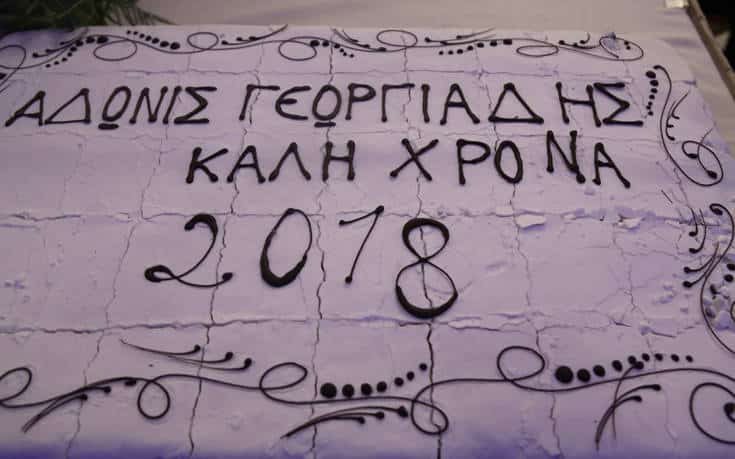 ΑΔΩΝΙΣ ΓΕΩΡΓΙΑΔΗΣ
ΚΑΛΗ ΧΡΟΝΑ
2018